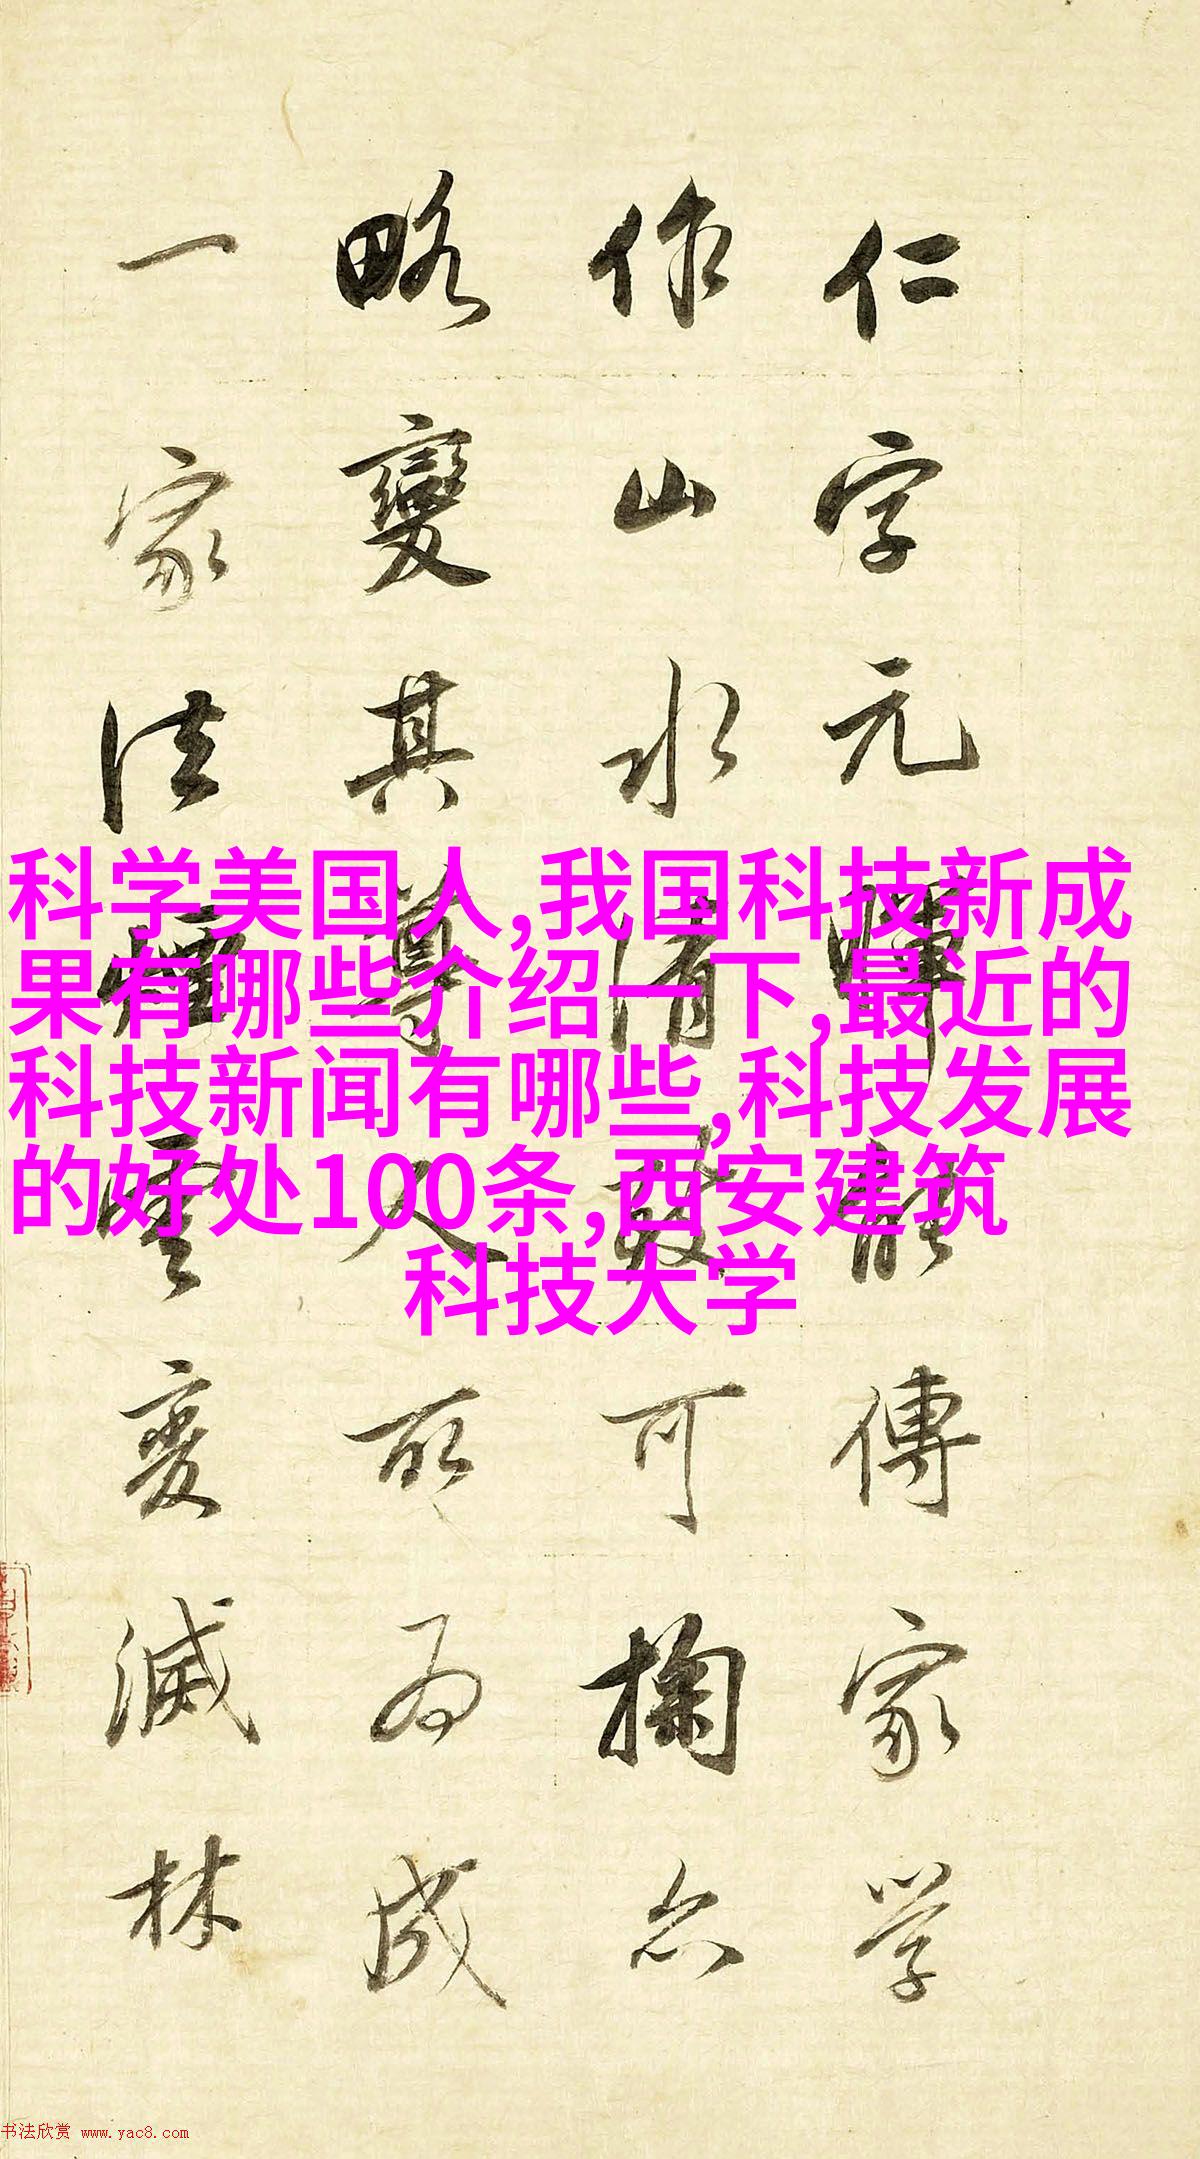 仁字元暉能傳家學
作山水清致可掬亦
略變其尊人所為成
一家法煙雲變滅林
科学美国人,我国科技新成
果有哪些介绍一下,最近的
科技新闻有哪些,科技发展
的好处100条,西安建筑
科技大学
书法欣赏 www.yac8.com